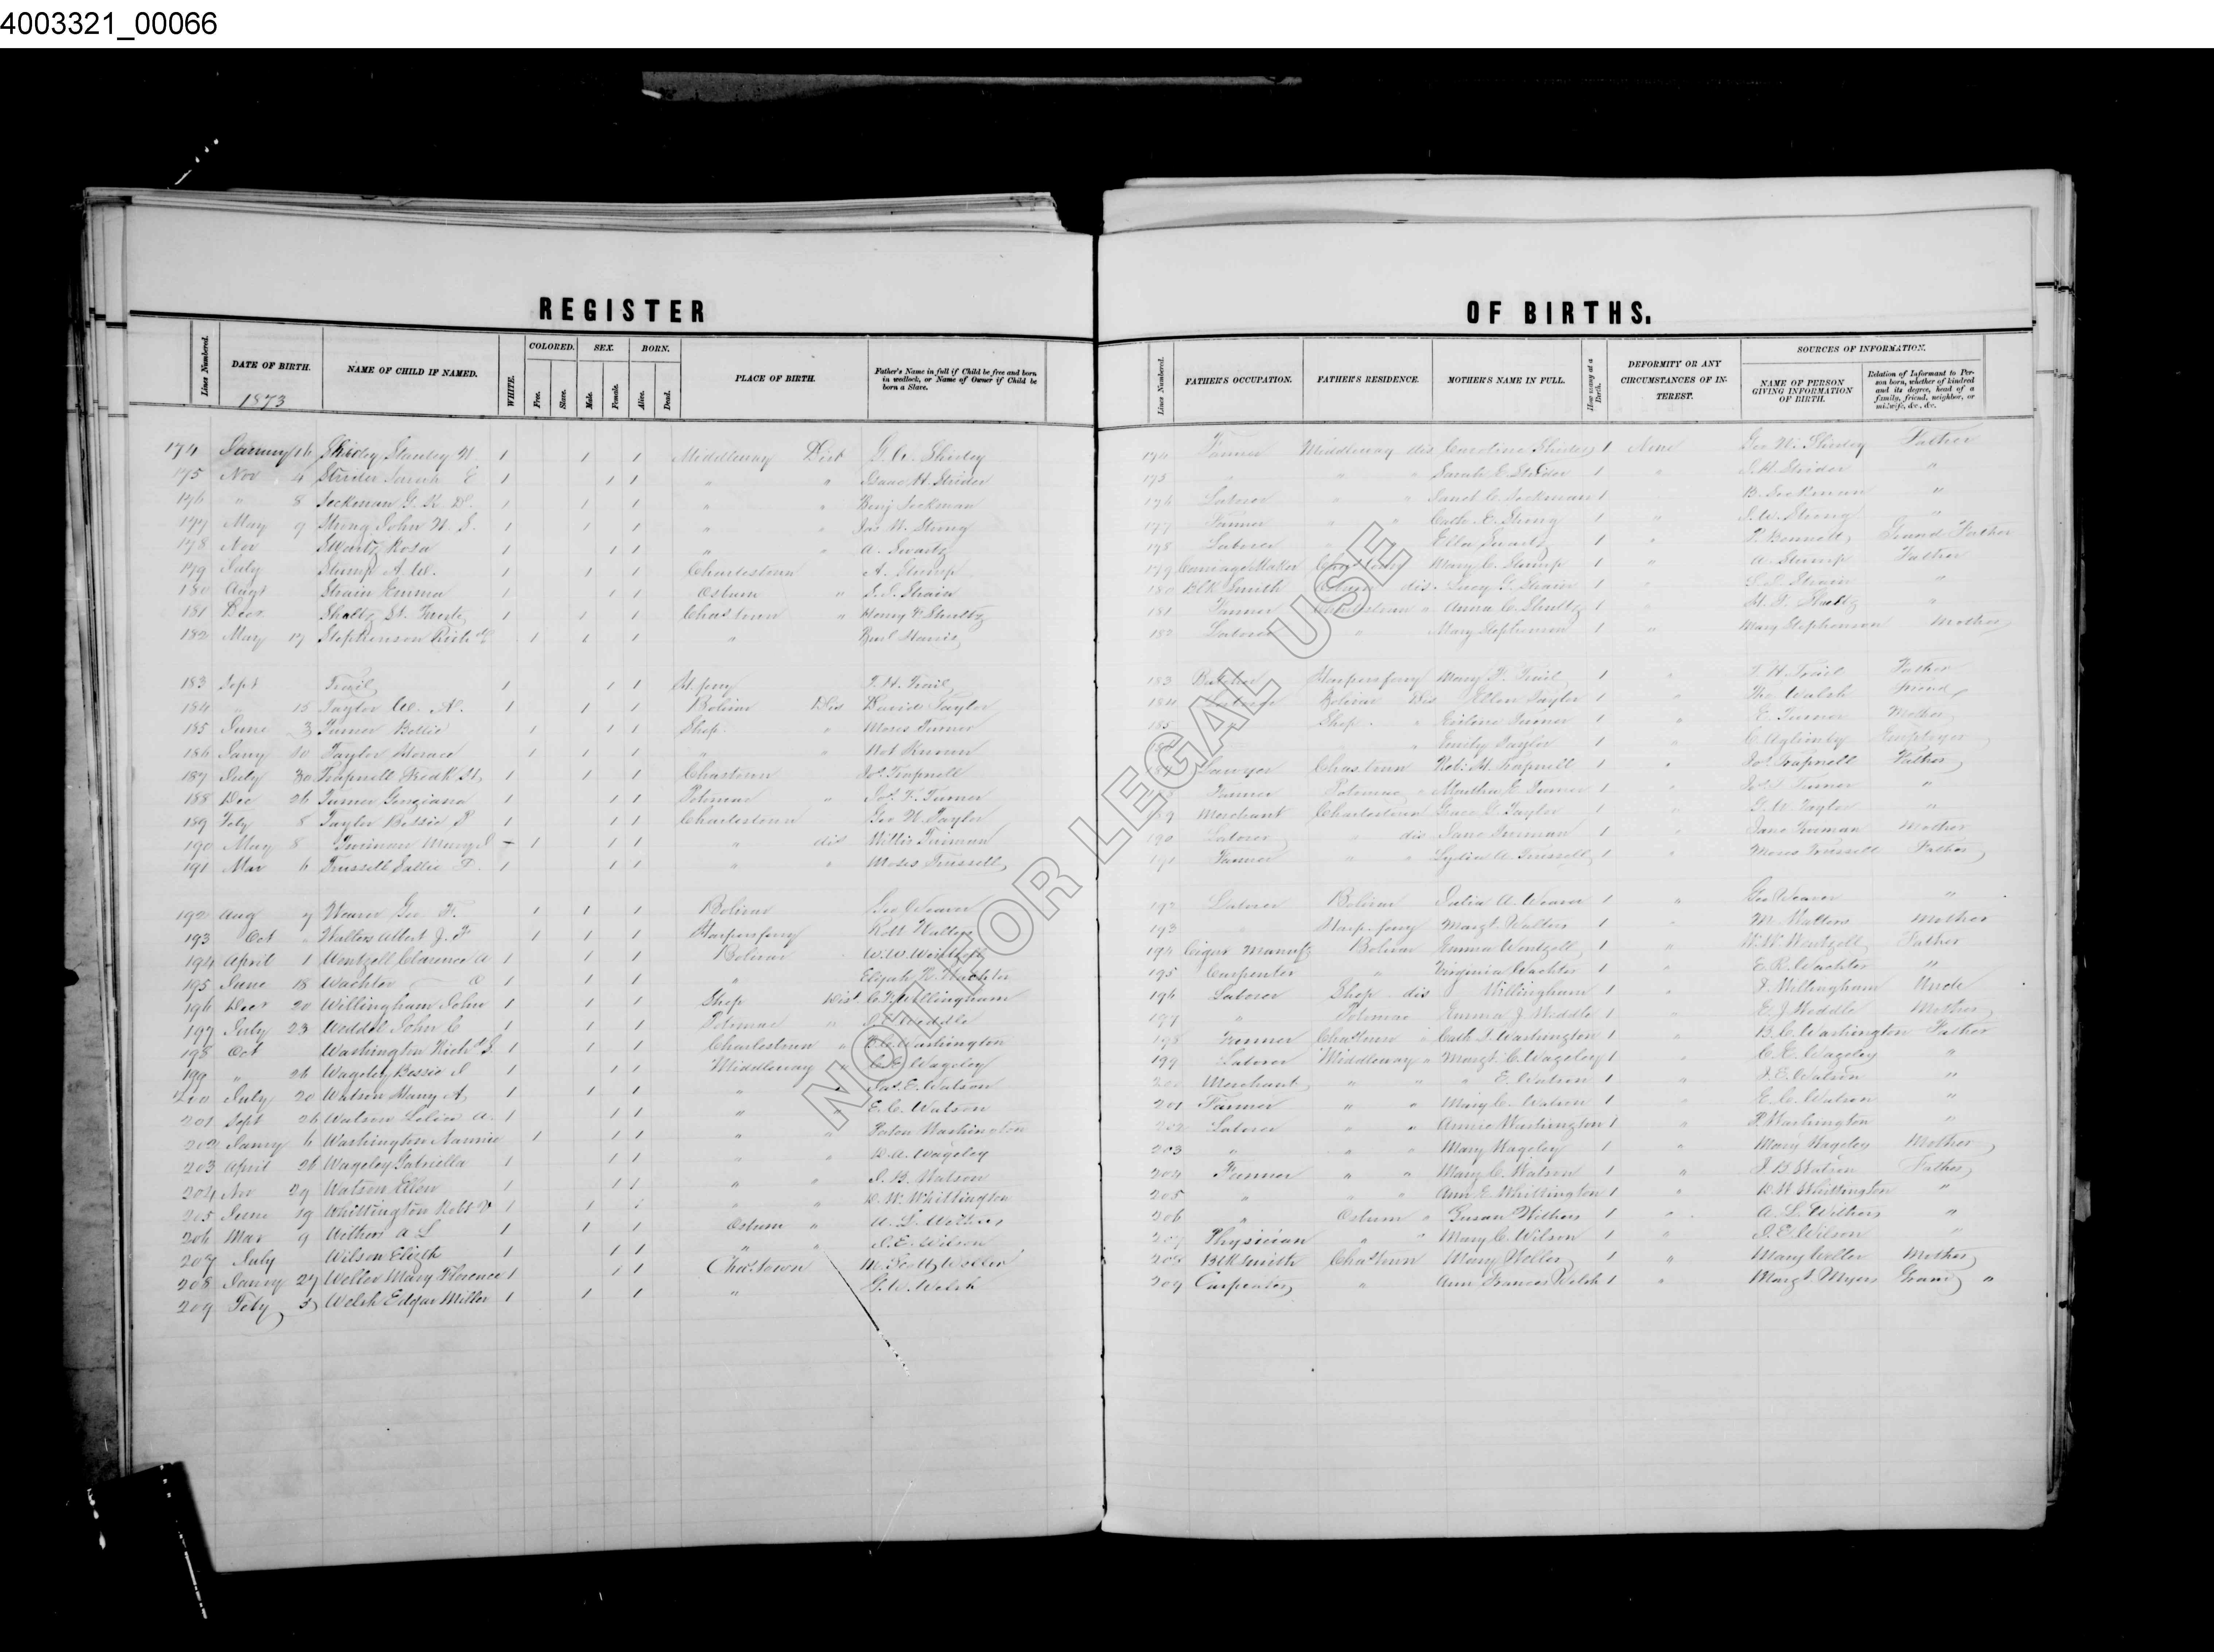 4003321_00066
REGISTER OF BIRTHS.
Lines Numbered. DATE OF BIRTH. 1873 NAME OF CHILD IF NAMED. WHITE. COLORED. Free. Slave. SEX. Male. Female. BORN. Alive. Dead. PLACE OF BIRTH. Father's Name in full if Child be free and born in wedlock, or Name of Owner if Child be born a Slave.
Lines Numbered. FATHER'S OCCUPATION. FATHER'S RESIDENCE. MOTHER'S NAME IN FULL. How many at a Birth. DEFORMITY OR ANY CIRCUMSTANCES OF INTEREST. SOURCES OF INFORMATION. NAME OF PERSON GIVING INFORMATION OF BIRTH. Relation of Informant to Person born, whether of kindred and its degree, head of a family, friend, neighbor, or midwife, &c., &c.
174 16 Shirley Stanley 1 1 1 Middleway Dist G. W. Shirley 174 Farmer Middleway dis Caroline Shirley 1 None Geo W. Shirley Father
175 Nov 4 Strider Sarah E 1 1 1 " " Isaac H. Strider 175 " " " Sarah E Strider 1 " Strider "
176 " 8 1 1 1 " " Benj 176 Laborer " " 1 B. "
177 May 9 Strong John W. S. 1 1 1 " " Jas W. Strong 177 Farmer " " Cath. E. Strong 1 " J. W. Strong "
178 Nov Swartz Rosa 1 1 1 " " A. Swartz 178 Laborer " " Ella Swartz 1 " P. Bennett Grand Father
179 July Stump A. W. 1 1 1 Charlestown A. Stump 179 Carriage Maker Mary C. Stump 1 " A. Stump Father
180 Augt Strain Emma 1 1 1 Osburn " Strain 180 Blk Smith Osburn dis. Lucy G. Strain 1 " Strain "
181 Decr 1 1 1 Chastown " Henry Shultz 181 Farmer " Anna C. Shultz 1 "
182 May 17 Stephenson 1 1 1 " Harris 182 Laborer " Mary Stephenson 1 " Mary Stephenson Mother
183 Sept Trail 1 1 1 H. ferry T. H. Trail 183 Harpersferry Mary F. Trail 1 " T. H. Trail Father
184 " 15 Taylor W. 1 1 1 Bolivar Dis David Taylor 184 Bolivar Dis Ellen Taylor 1 " Walsh Friend
185 June 3 Turner 1 1 1 Shep. " Moses Turner 185 " Shep. " Turner 1 " E. Turner Mother
186 Jany 10 Taylor Horace 1 1 1 " " Not Known " Emily Taylor 1 " C. Employer
187 July 30 Trapnell Fredk 1 1 1 Chastown Jos. Trapnell Lawyer Chas.town Trapnell 1 " Jos. Trapnell Father
188 Dec 26 Turner Georgiana 1 1 1 Potomac " Jos. F. Turner Farmer Potomac " Martha E. Turner 1 " Turner "
189 Feby 8 Taylor Bessie 1 1 1 Charlestown Geo W. Taylor Merchant Charlestown Grace G. Taylor 1 " G. W. Taylor "
190 May 8 1 1 1 " dis Willis 190 Laborer " dis Jane 1 " Jane Mother
191 Mar 6 Trussell Sallie 1 1 1 " " Moses Trussell 191 Farmer " " Trussell 1 " Moses Trussell Father
192 Aug 7 Weaver Geo F. 1 1 1 Bolivar Geo Weaver 192 Laborer Bolivar Julia A. Weaver 1 " Geo Weaver "
193 Oct Walters Albert J. F 1 1 1 Harpersferry Robt Walters 193 " Harp. ferry Margt. Walters 1 " M. Walters Mother
194 April 1 Wentzell Clarence A 1 1 1 Bolivar W. W. Wentzell 194 Cigar Manuf. Bolivar Emma Wentzell 1 " W. W. Wentzell Father
195 June 18 Wachter 1 1 1 " Elijah R. Wachter 195 Carpenter " Virginia Wachter 1 " E. R. Wachter "
196 Decr 20 Willingham John 1 1 1 Shep Dist Willingham 196 Laborer Shep dis Willingham 1 " J. Willingham Uncle
197 July 23 Weddel John C 1 1 1 Potomac " Weddle 197 " Potomac Emma J Weddle 1 " E. J Weddle Mother
198 Oct Washington Richd. S. 1 1 1 Charlestown " B. C. Washington 198 Farmer Chastown " Cath. Washington 1 " B. C. Washington Father
199 " 26 Wageley Bessie 1 1 1 Middleway " Wageley 199 Laborer Middleway " Margt. C. Wageley 1 " C. E. Wageley "
200 July 20 Watson Harry A. 1 1 1 " Jas. E. Watson 200 Merchant " " " E. Watson 1 " J. E. Watson "
201 Sept 26 Watson Lelia A. 1 1 1 " " E. C. Watson 201 Farmer " " Mary C. Watson 1 " E. C. Watson "
202 Jany 6 Washington Nannie 1 1 1 " " Washington 202 Laborer " " Annie Washington 1 " P. Washington "
203 April 26 Wageley Gabriella 1 1 1 " " Wageley 203 " " " Mary Wageley 1 " Mary Wageley Mother
204 Nov 29 Watson Ellen 1 1 1 " " J. B. Watson 204 Farmer " " Mary C. Watson 1 " J. B. Watson Father
205 June 19 Whittington Robt V 1 1 1 " " Whittington 205 " " " Ann E Whittington 1 " Whittington "
206 Mar 9 Withers A L 1 1 1 Osburn " A. L. Withers 206 " Osburn " Susan Withers 1 " A. L. Withers "
207 July Wilson Elizth 1 1 1 " " J. E. Wilson 207 Physician " " Mary C. Wilson 1 " J. E. Wilson "
208 Jany 27 Weller Mary Florence 1 1 1 Chas.town M. Scott Weller 208 Blk smith Chastown Mary Weller 1 " Mary Weller Mother
209 Feby 3 Welsh Edgar Miller 1 1 1 " G. W. Welsh 209 Carpenter " Ann Frances Welsh 1 " Margt. Myers Grand "
NOT FOR LEGAL USE